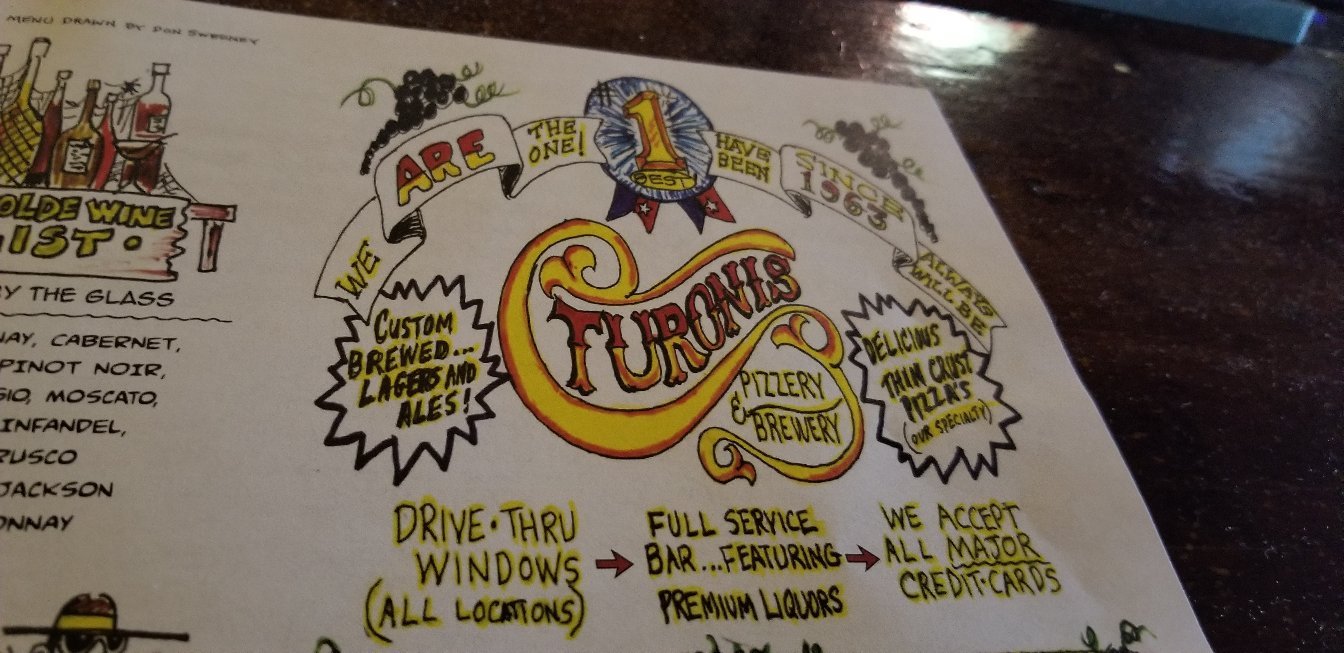 MENU DRAWN BY DON SWEENEY
OLDE WINE
LIST.
BY THE GLASS
CABERNET,
PINOT NOIR,
MOSCATO,
JACKSON
WE
ARE
THE
ONE!
#1
BEST
HAVE
BEEN
SINCE
1963
ALWAYS
WILL BE
CUSTOM
BREWED...
LAGERS AND
ALES!
TURONIS
PIZZERY
&
BREWERY
DELICIOUS
THIN CRUST
PIZZA'S
(OUR SPECIALTY)
DRIVE-THRU
WINDOWS
(ALL LOCATIONS)
FULL SERVICE
BAR...FEATURING
PREMIUM LIQUORS
WE ACCEPT
ALL MAJOR
CREDIT-CARDS